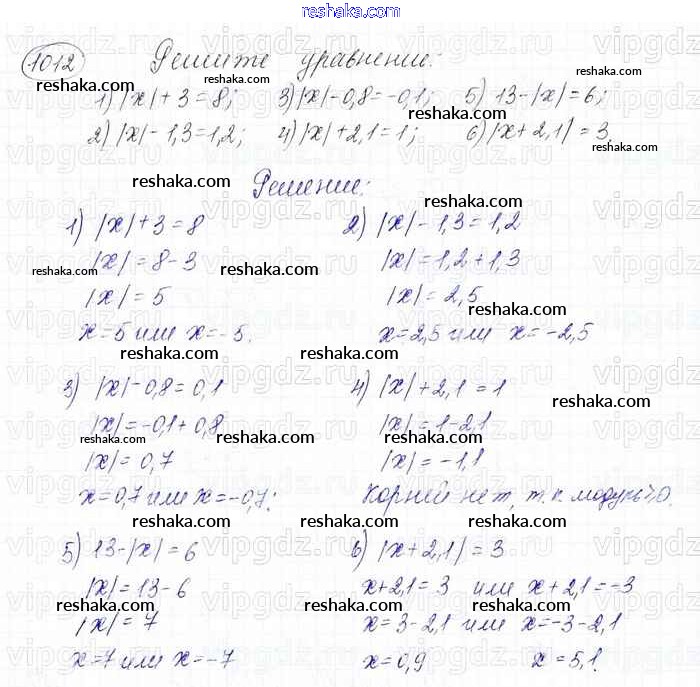 reshaka.ru
1012 Решите уравнение:
1) |x| + 3 = 8; 3) |x| - 0,8 = -0,1; 5) 13 - |x| = 6;
2) |x| - 1,3 = 1,2; 4) |x| + 2,1 = 1; 6) |x + 2,1| = 3
Решение:
1) |x| + 3 = 8
|x| = 8 - 3
|x| = 5
x = 5 или x = -5.
2) |x| - 1,3 = 1,2
|x| = 1,2 + 1,3
|x| = 2,5
x = 2,5 или x = -2,5
3) |x| - 0,8 = 0,1
|x| = -0,1 + 0,8
|x| = 0,7
x = 0,7 или x = -0,7.
4) |x| + 2,1 = 1
|x| = 1 - 2,1
|x| = -1,1
Корней нет, т.к. модуль ≥ 0.
5) 13 - |x| = 6
|x| = 13 - 6
|x| = 7
x = 7 или x = -7
6) |x + 2,1| = 3
x + 2,1 = 3 или x + 2,1 = -3
x = 3 - 2,1 или x = -3 - 2,1
x = 0,9 x = 5,1.
reshaka.com
vipgdz.ru